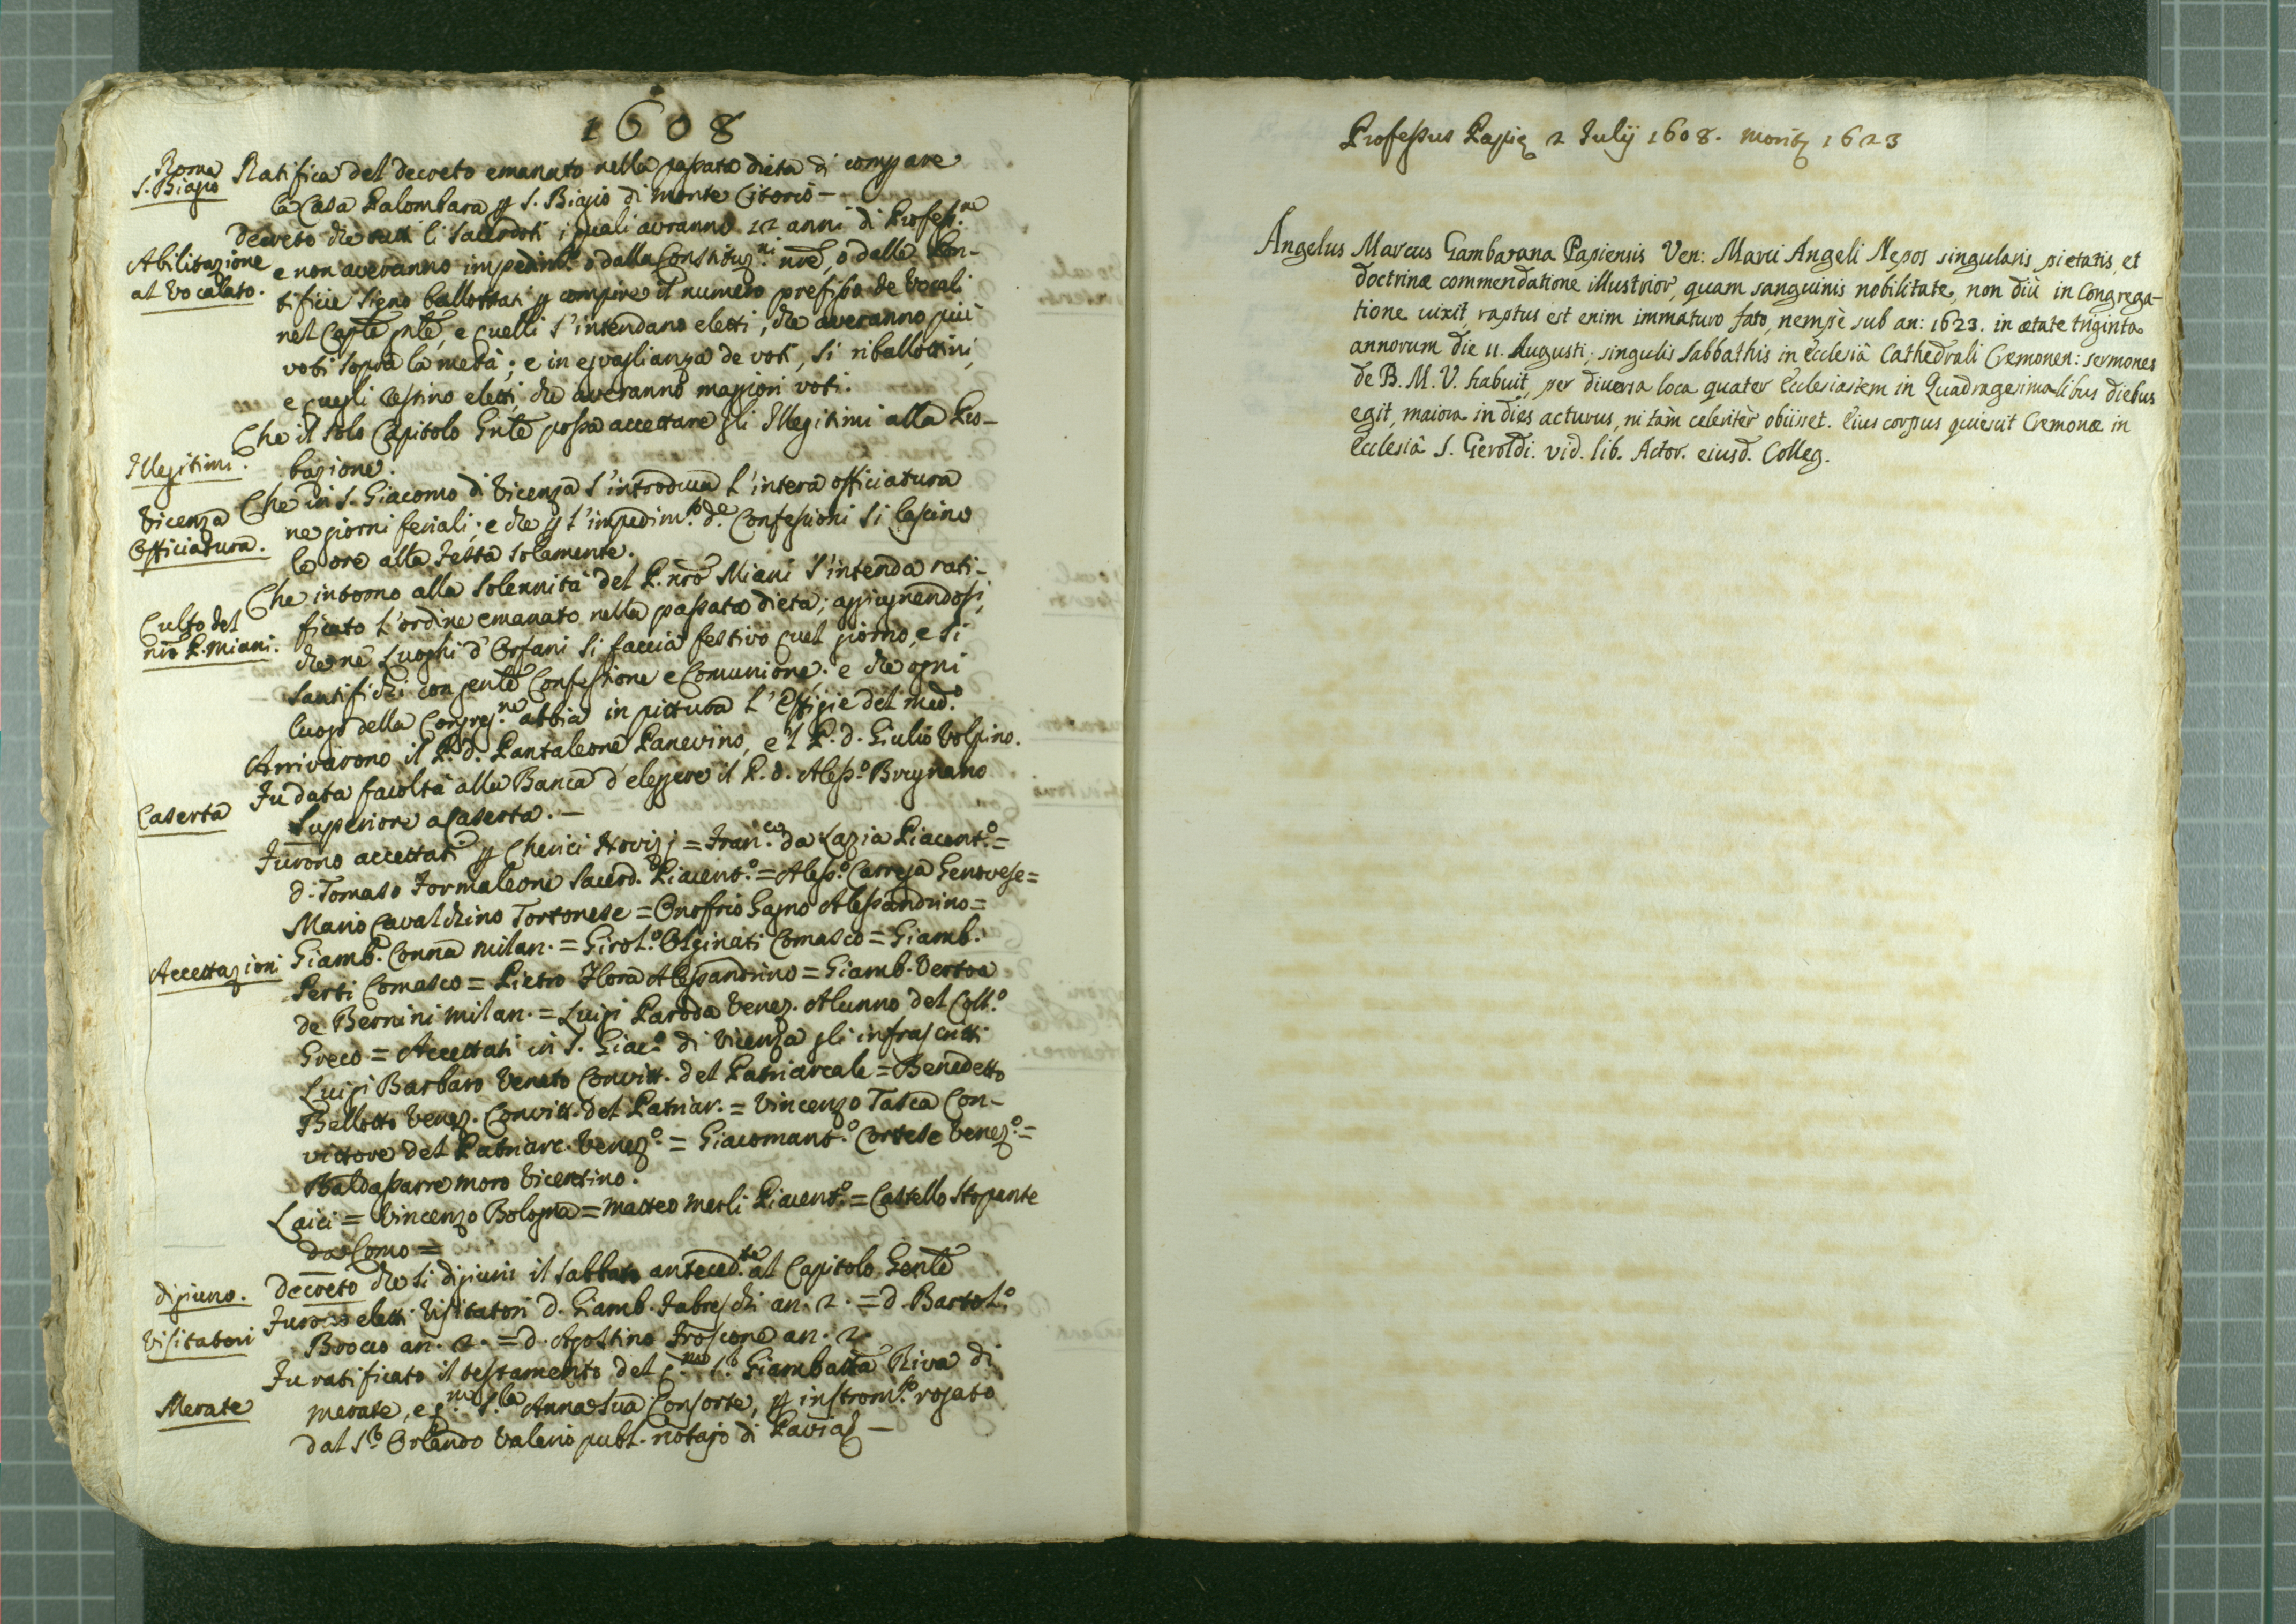 1608
Roma
S. Biagio
Ratifica del decreto emanato nella passata dieta di comprare
la Casa Palombara p S. Biagio di Monte Citorio –
Abilitazione
al Vocalato.
Decreto che tutti li Sacerdoti i quali avranno 12 anni di Profess.ne
e non averanno impedim.to o dalla Constituz.ni nrē, o dalle Pon-
tificie sieno ballottati p compire il numero prefisso de Vocali
nel Caplō pntē, e quelli s'intendano eletti, che averanno più
voti sopra la metà; e in eguaglianza de voti, si riballottini,
e quegli restino eletti, che averanno maggiori voti.
Illegitimi.
Che il solo Capitolo Gnlē possa accettare gli Illegitimi alla Pro-
bazione.
Vicenza
Officiatura.
Che in S. Giacomo di Vicenza s'introduca l'intera officiatura
ne giorni feriali; e che p l'impedim.to de Confessioni si lascino
le ore alla Festa solamente.
Culto del
nrō P. Miani.
Che intorno alla solennità del P. nrō Miani s'intenda rati-
ficato l'ordine emanato nella passata dieta; aggiugnendosi,
che ne Luoghi d'Orfani si faccia festivo quel giorno, e si
santifichi con genlē Confessione e Comunione; e che ogni
luogo della Congreg.ne abbia in pittura l'Effigie del med.o
Arrivarono il P. d. Pantaleone Panevino, e 'l P. d. Giulio Volpino.
Caserta
Fu data facoltà alla Banca d'eleggere il P. d. Aless.o Brugnano
Superiore a Caserta. –
Accettazioni
Furono accettati p Cherici Novizj = Fran.co da Lazia Piacent.o =
d. Tomaso Formaleoni Sacerd. Piacent.o = Aless.o Carrega Genovese =
Mario Cavalchino Tortonese = Onofrio Gagno Alessandrino =
Giamb. Conna Milan. = Girol.o Olginati Comasco = Giamb.
Perti Comasco = Pietro Flora Alessandrino = Giamb. Vertoa
de Bernini Milan. = Luigi Paroda Venez. Alunno del Coll.o
Greco = Accettati in S. Giac.o di Vicenza gli infrascritti
Luigi Barbaro Veneto Convitt. del Patriarcale = Benedetto
Bellotto Venez. Convitt. del Patriar. = Vincenzo Tasca Con-
vittore del Patriarc. Venez.o = Giacomant.o Cortese Venez.o =
Baldassarre Moro Vicentino.
Laici = Vincenzo Bologna = Matteo Merli Piacent.o = Castello Stopante
da Como =
digiuno.
Decreto che si digiuni il Sabbato anteced.te al Capitolo Genlē
Visitatori
Furono eletti Visitatori D. Giamb. Fabreschi an. 2. = d. Bartol.o
Brocco an. 2. = d. Agostino Froscone an. 2
Merate
Fu ratificato il testamento del q.m S.r Giambatta Riva di
Merate, e q.m S.la Anna sua Consorte, p instrom.to rogato
dal S.r Orlando Valerio publ. notajo di Pavia –
Professus Papię 2 Julij 1608. moritz 1623
Angelus Marcus Gambarana Papiensis Ven: Marci Angeli Nepos singularis pietatis, et
doctrinæ commendatione illustrior, quam sanguinis nobilitate, non diù in Congrega-
tione uixit, raptus est enim immaturo fato, nempè sub an: 1623. in ætate triginta
annorum die 11. Augusti; singulis Sabbathis in Ecclesiâ Cathedrali Cremonen: sermones
de B. M. V. habuit, per diuersa loca quater Ecclesiastem in Quadragesimalibus diebus
egit, maiora in dies acturus, ni tàm celeritèr obiisset. Eius corpus quiescit Cremonæ in
Ecclesiâ S. Geroldi. vid. lib. Actor. eiusd. Colleg.